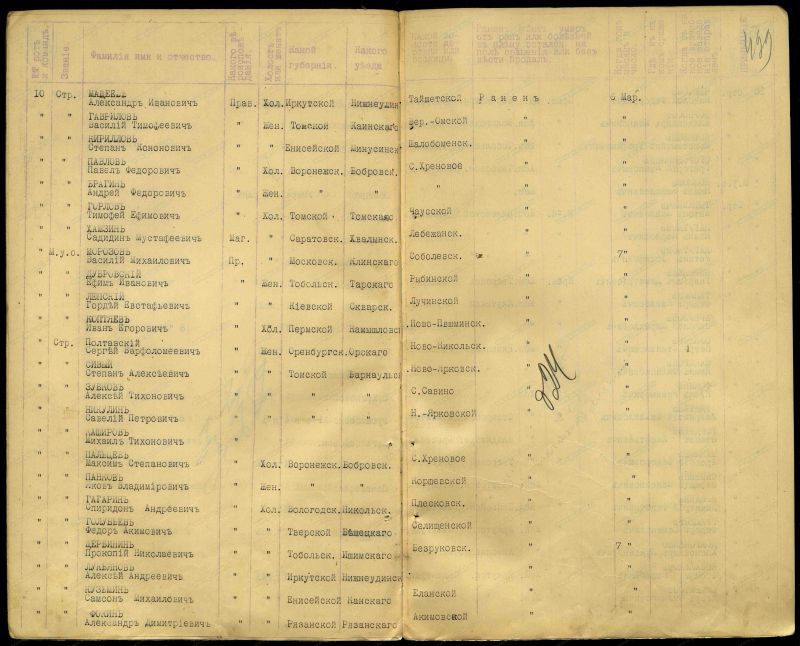 Званіе. Фамилія имя и отчество. Холостъ или женатъ Какой губерніи. Какого уѣзда 499
10 Стр. МАЦЕЕВЪ
Александръ Ивановичъ Прав. Хол. Иркутской Нижнеудин Тайшетской Раненъ 6 Мар.
" " ГАВРИЛОВЪ
Василій Тимофеевичъ " Жен. Томской Каинскаго Вер.-Омской " "
" " КИРИЛЛОВЪ
Степанъ Кононовичъ " " Енисейской Минусинск Шалобоменск. " "
" " ПАВЛОВЪ
Павелъ Федоровичъ " Хол. Воронежск. Бобровск. С.Хреновое " "
" " БРАГИНЪ
Андрей Федоровичъ " Жен. " " " " "
" " ГОРЛОВЪ
Тимофей Ефимовичъ " Хол. Томской Томскаго Чаусской " "
" " ХАМЗИНЪ
Садидинъ Мустафеевичъ Маг. " Саратовск. Хвалынск. Лебежанск. " "
" М.у.о. МОРОЗОВЪ
Василій Михаиловичъ Пр. " Московск. Клинскаго Соболевск. " 7"
" " ДУБРОВСКІЙ
Ефимъ Ивановичъ " Жен. Тобольск. Тарскаго Рыбинской " "
" " ЛЕПСКІЙ
Гордѣй Евстафьевичъ " " Кіевской Скварск. Лучинской " "
" " КОПТЯЕВЪ
Иванъ Егоровичъ " Хол. Пермской Камышловс Ново-Пышминск. " "
" Стр. Полтавскій
Сергѣй Варфоломеевичъ " Жен. Оренбургск. Орскаго Ново-Никольск. " "
" " СИВЫЙ
Степанъ Алексѣевичъ " " Томской Барнаульс Ново-Ярковск. " "
" " ЗУБКОВЪ
Алексѣй Тихоновичъ " " " " С.Савино " "
824
" " НИКУЛИНЪ
Савелій Петровичъ " " " " Н.-Ярковской " "
" " КАШИРОВЪ
Михаилъ Тихоновичъ " " " " " "
" " ПАЛЬЦЕВЪ
Максимъ Степановичъ " Хол. Воронежск. Бобровск. С.Хреновое " "
" " ПАНКОВЪ
Яковъ Владимировичъ " Жен. " " Коршевской " "
" " ГАГАРИНЪ
Спиридонъ Андреевичъ " Хол. Вологодск. Никольск. Плесковск. " "
" " ГОЛУБЬЕВЪ
Федоръ Акимовичъ " " Тверской Селищенской " "
" " ЩЕРБИНИНЪ
Прокопій Николаевичъ " " Тобольск. Ишимскаго Безруковск. " 7 "
" " ЛУКЬЯНОВЪ
Алексѣй Андреевичъ " " Иркутской Нижнеудинск " " "
" " КУЗЬМИНЪ
Самсонъ Михаиловичъ " " Енисейской Канскаго Еланской " "
" " ФОКИНЪ
Александръ Димитріевичъ " " Рязанской Рязанскаго Акимовской " "